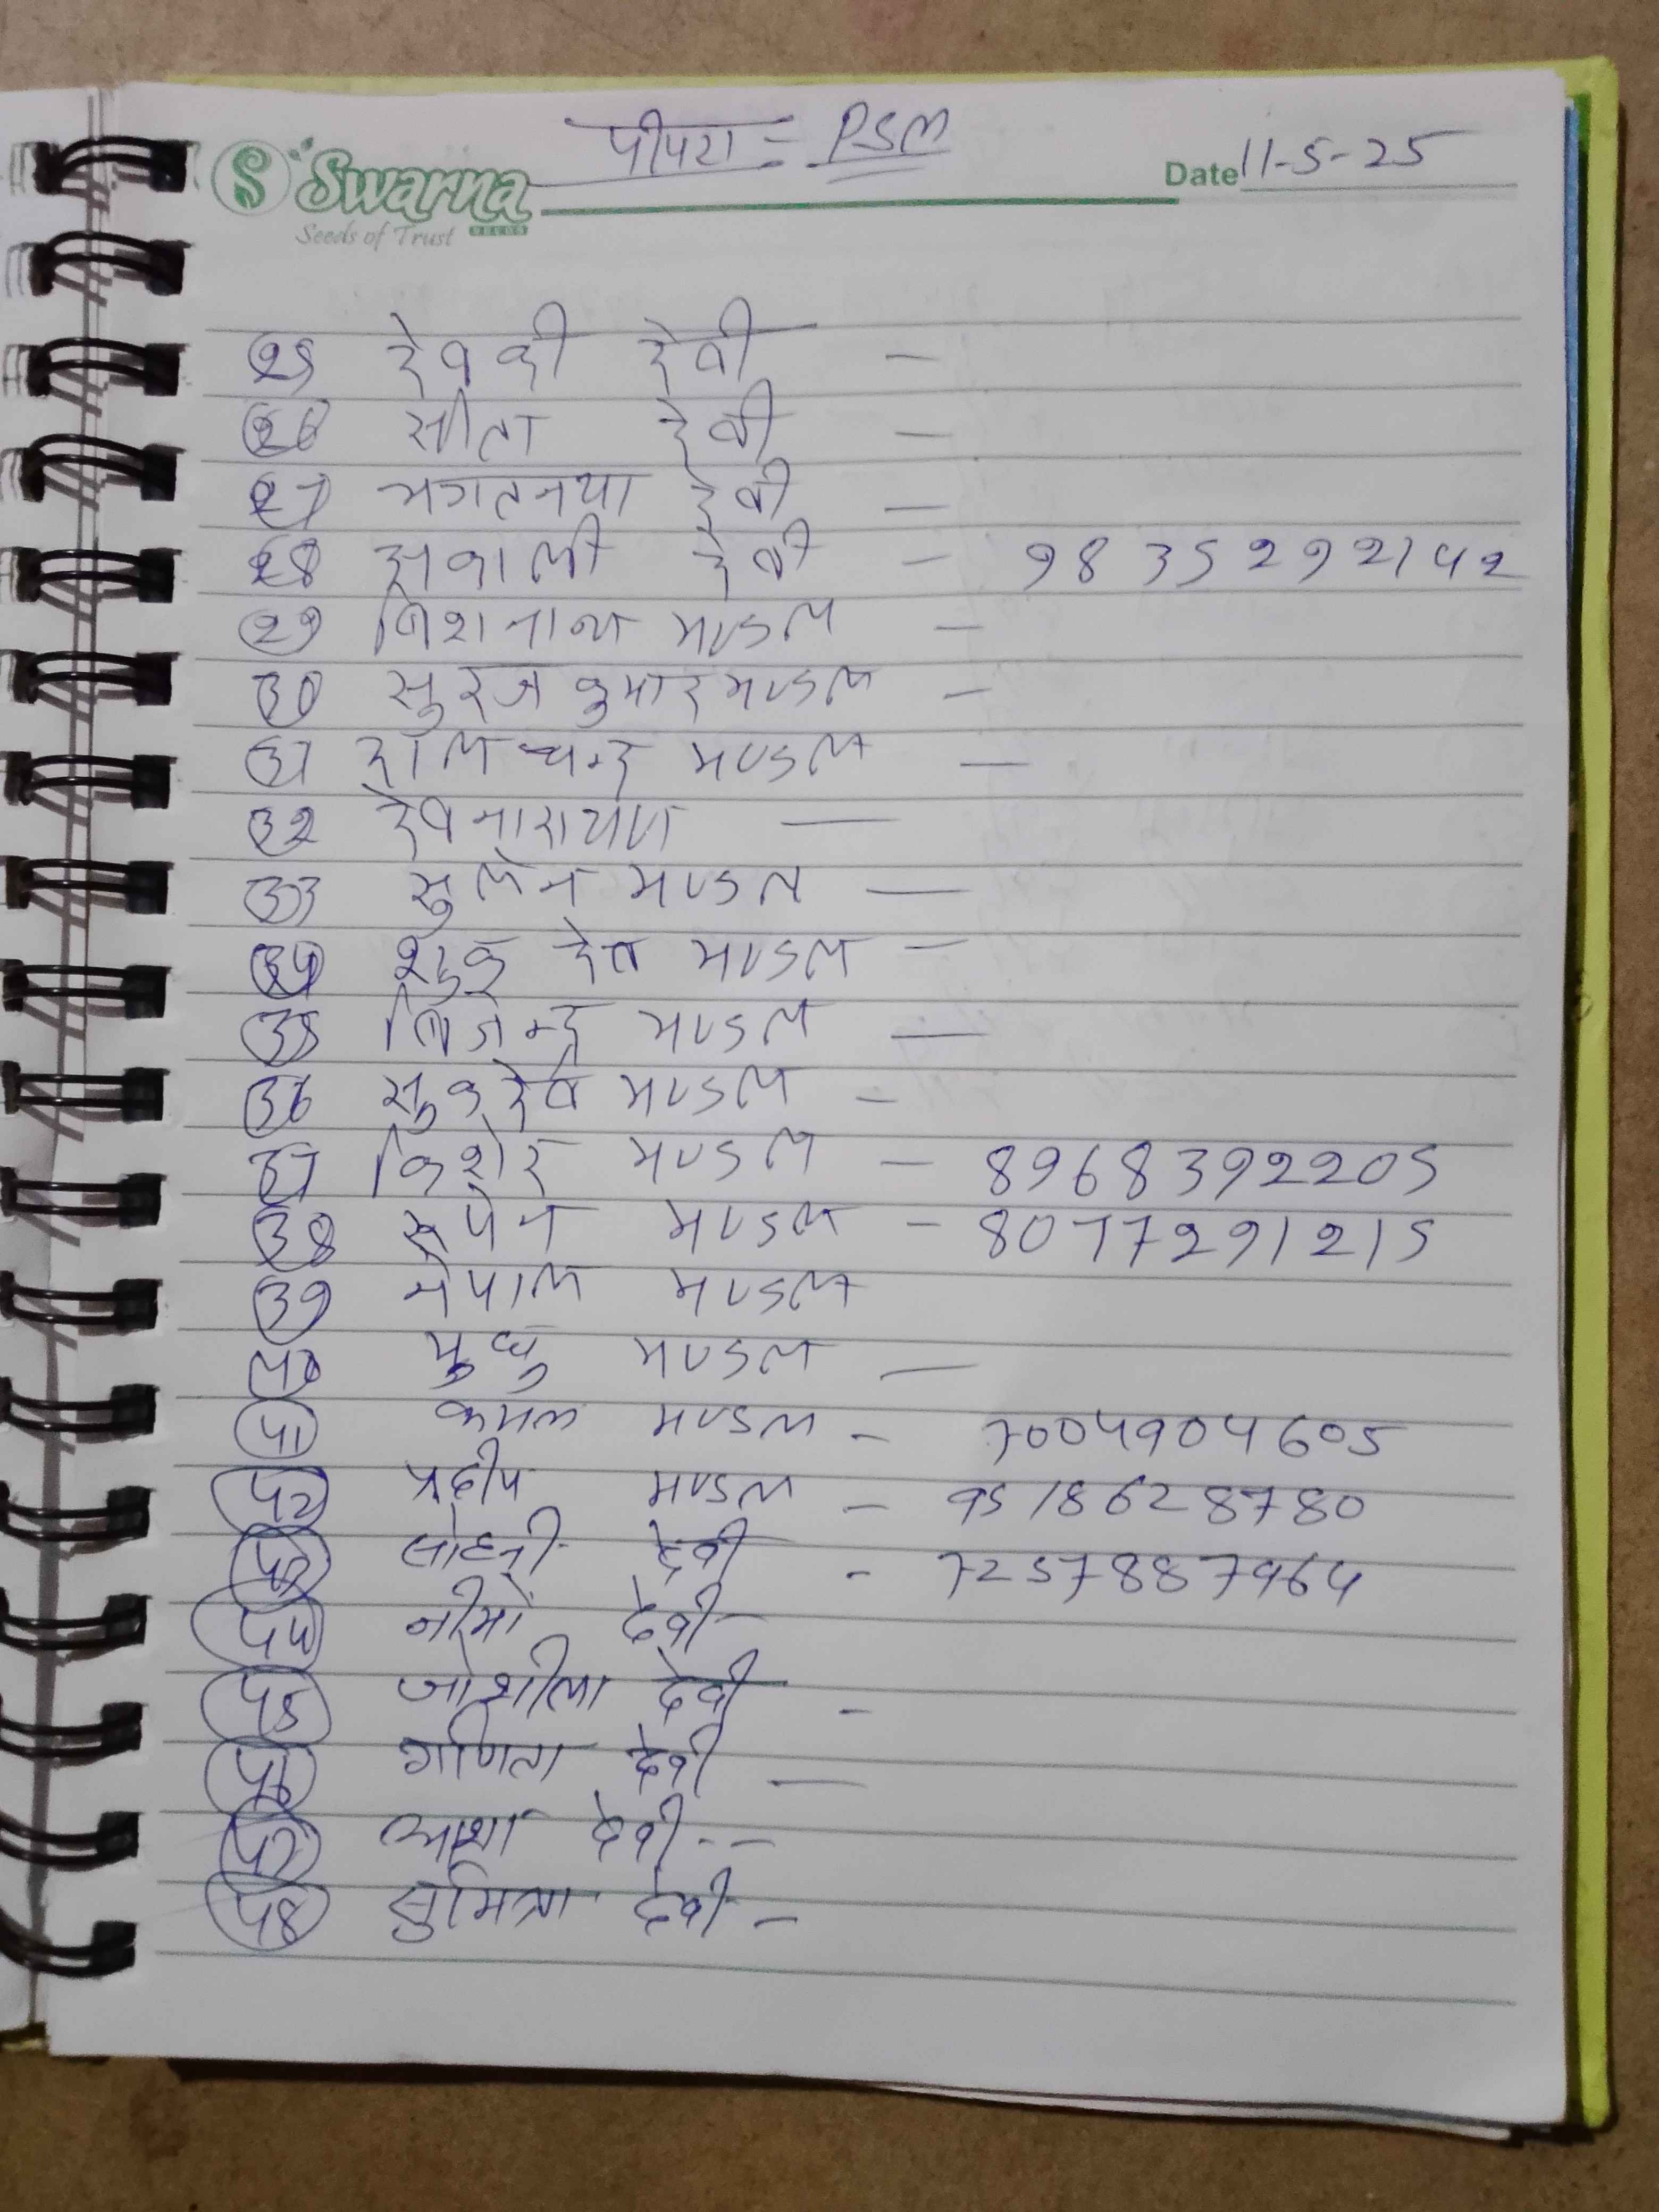 पीपरा = PSM
Swarna
Seeds of Trust SEEDS
Date 11-5-25
25 देवकी देवी -
26 सीता देवी -
27 भगतनया देवी -
28 झकाली देवी - 9835292142
29 बिशनाथ मण्डल -
30 सुरज कुमार मण्डल -
31 दालचन्द मण्डल -
32 देवनारायण -
33 सुलेन मण्डल -
34 शुक देव मण्डल -
35 बिजेन्द्र मण्डल -
36 सुकदेव मण्डल -
37 किशोर मण्डल - 8968392205
38 रूपेन मण्डल - 8077291215
39 नेपाल मण्डल
40 मण्डल -
41 कमल मण्डल - 7004904605
42 प्रदीप मण्डल - 9518628780
43 सोहनी देवी - 7257887964
44 नीमो देवी -
45 जोशीला देवी -
46 गणिता देवी -
47 आशा देवी --
48 सुमित्रा देवी -